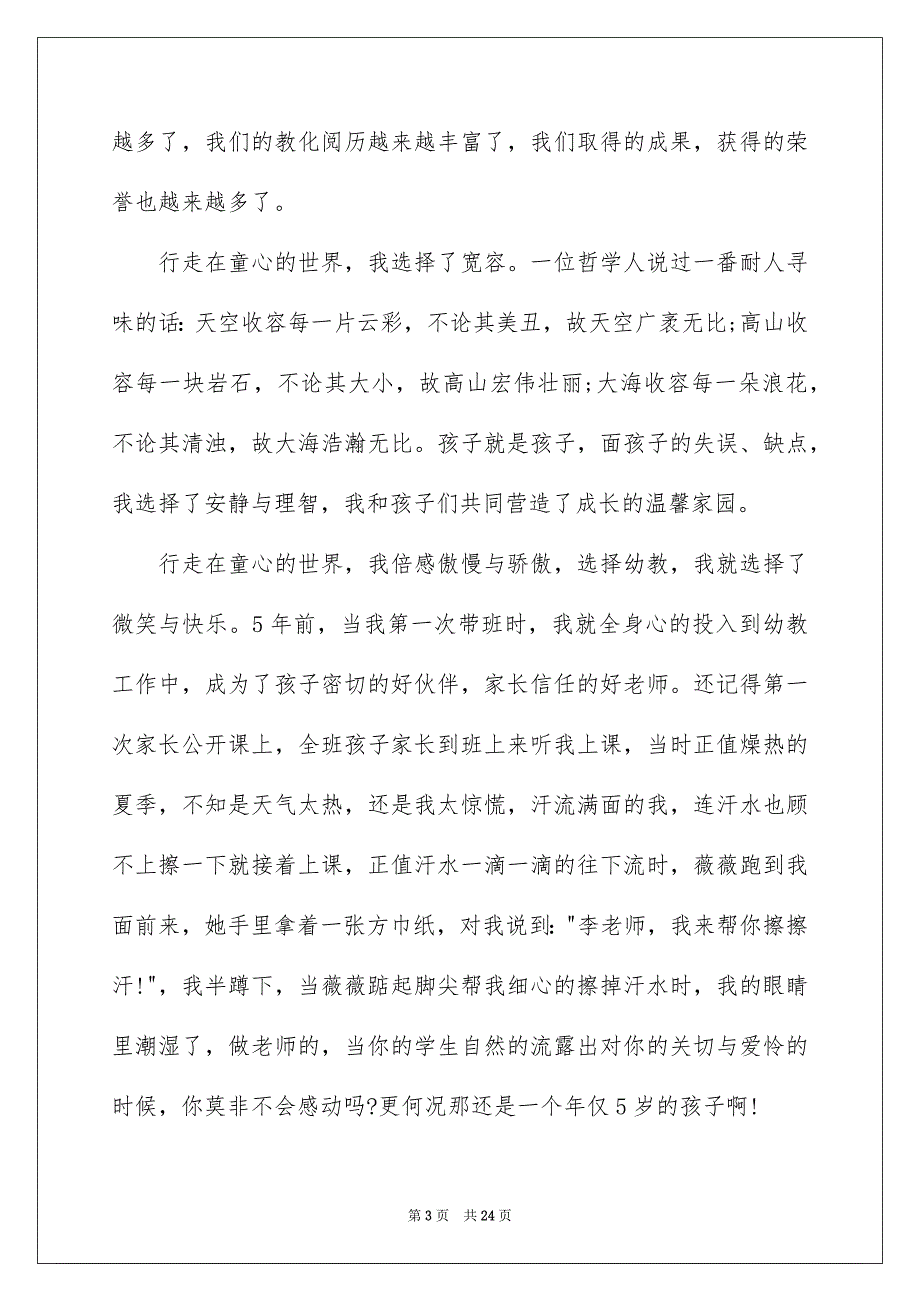 越多了，我们的教化阅历越来越丰富了，我们取得的成果，获得的荣
誉也越来越多了。
行走在童心的世界，我选择了宽容。一位哲学人说过一番耐人寻
味的话: 天空收容每一片云彩，不论其美丑，故天空广袤无比;高山收
容每一块岩石，不论其大小，故高山宏伟壮丽;大海收容每一朵浪花，
不论其清浊，故大海浩瀚无比。孩子就是孩子，面孩子的失误、缺点，
我选择了安静与理智，我和孩子们共同营造了成长的温馨家园。
行走在童心的世界，我倍感傲慢与骄傲，选择幼教，我就选择了
微笑与快乐。5 年前，当我第一次带班时，我就全身心的投入到幼教
工作中，成为了孩子密切的好伙伴，家长信任的好老师。还记得第一
次家长公开课上，全班孩子家长到班上来听我上课，当时正值燥热的
夏季，不知是天气太热，还是我太惊慌，汗流满面的我，连汗水也顾
不上擦一下就接着上课，正值汗水一滴一滴的往下流时，薇薇跑到我
面前来，她手里拿着一张方巾纸，对我说到: "李老师，我来帮你擦擦
汗!"，我半蹲下，当薇薇踮起脚尖帮我细心的擦掉汗水时，我的眼睛
里潮湿了，做老师的，当你的学生自然的流露出对你的关切与爱怜的
时候，你莫非不会感动吗?更何况那还是一个年仅 5 岁的孩子啊!
第 3 页 共 24 页